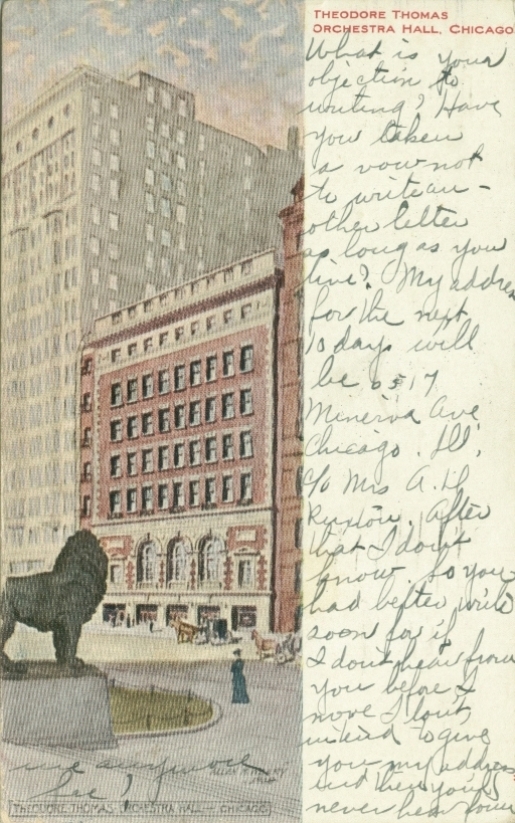 THEODORE THOMAS
ORCHESTRA HALL, CHICAGO
What is your
objection to
writing? Have
you taken
a vow not
to write an-
other letter
as long as you
live? My address
for the next
10 days will
be 6517
Minerva Ave
Chicago. Ill.
c/o Mrs A. H.
After
that I don't
know. So you
had better write
soon for if
I don't hear from
you before I
move I don't
intend to give
you my address
and then you'll
never hear from
me anymore
See?
THEODORE THOMAS ORCHESTRA HALL - CHICAGO